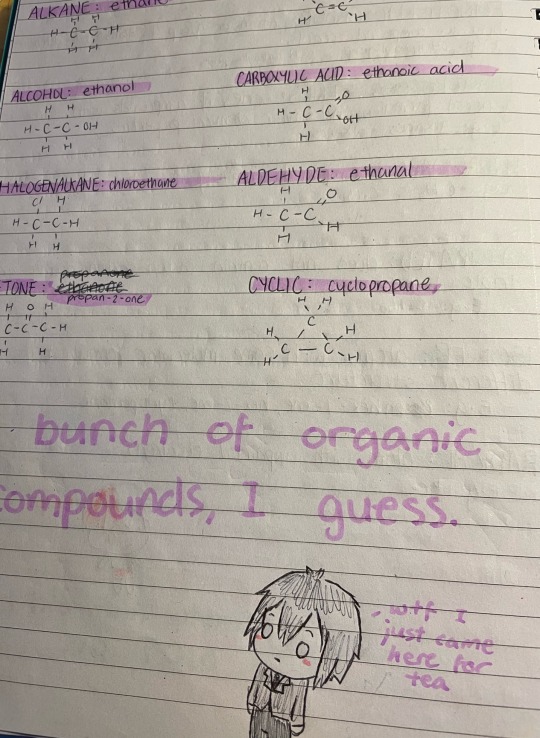 ALKANE: ethane
H-C-C-H
H H
C=C
H H
ALCOHOL: ethanol
H H
H-C-C-OH
H H
CARBOXYLIC ACID: ethanoic acid
H O
H-C-C
OH
H
HALOGENALKANE: chloroethane
Cl H
H-C-C-H
H H
ALDEHYDE: ethanal
H O
H-C-C
H H
TONE: propan-2-one
H O H
C-C-C-H
H H
CYCLIC: cyclopropane
H H
C
H H
C — C
H H
bunch of organic
compounds, I guess.
- wtf I
just came
here for
tea